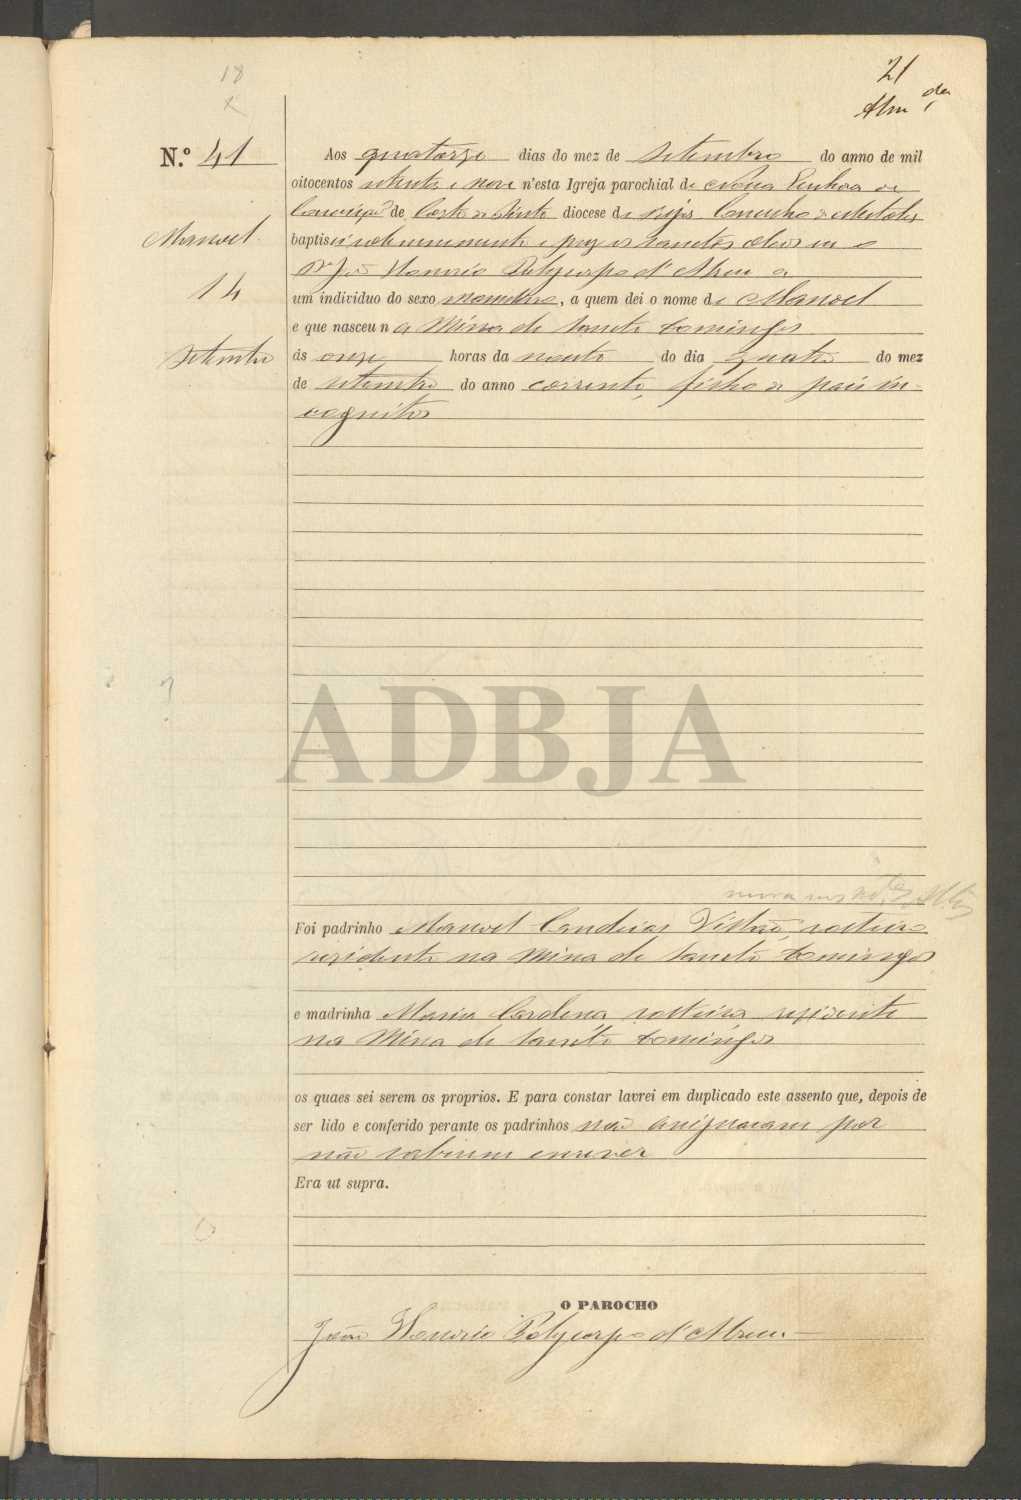 18
x
21
Alm.da
N.º 41
Manoel
14
Setembro
Aos quatorze dias do mez de Setembro do anno de mil
oitocentos setenta e nove n'esta Igreja parochial de Nossa Senhora da
Conceição de Corte do Pinto diocese de Beja Concelho de Mertola
baptisei solemnemente e puz os sanctos oleos eu o
P.e João Honorio Polycarpo d'Abreu a
um individuo do sexo masculino, a quem dei o nome de Manoel
e que nasceu na Mina de Sancto Domingos
ás onze horas da noute do dia quatro do mez
de setembro do anno corrente, filho de pais in-
cognitos
ADBJA
Foi padrinho Manoel Candeias Vistão, solteiro
residente na Mina de Sancto Domingos
e madrinha Maria Cardena solteira residente
na Mina de Sancto Domingos
os quaes sei serem os proprios. E para constar lavrei em duplicado este assento que, depois de
ser lido e conferido perante os padrinhos não assignaram por
não saberem escrever
Era ut supra.
O PAROCHO
João Honorio Polycarpo d'Abreu